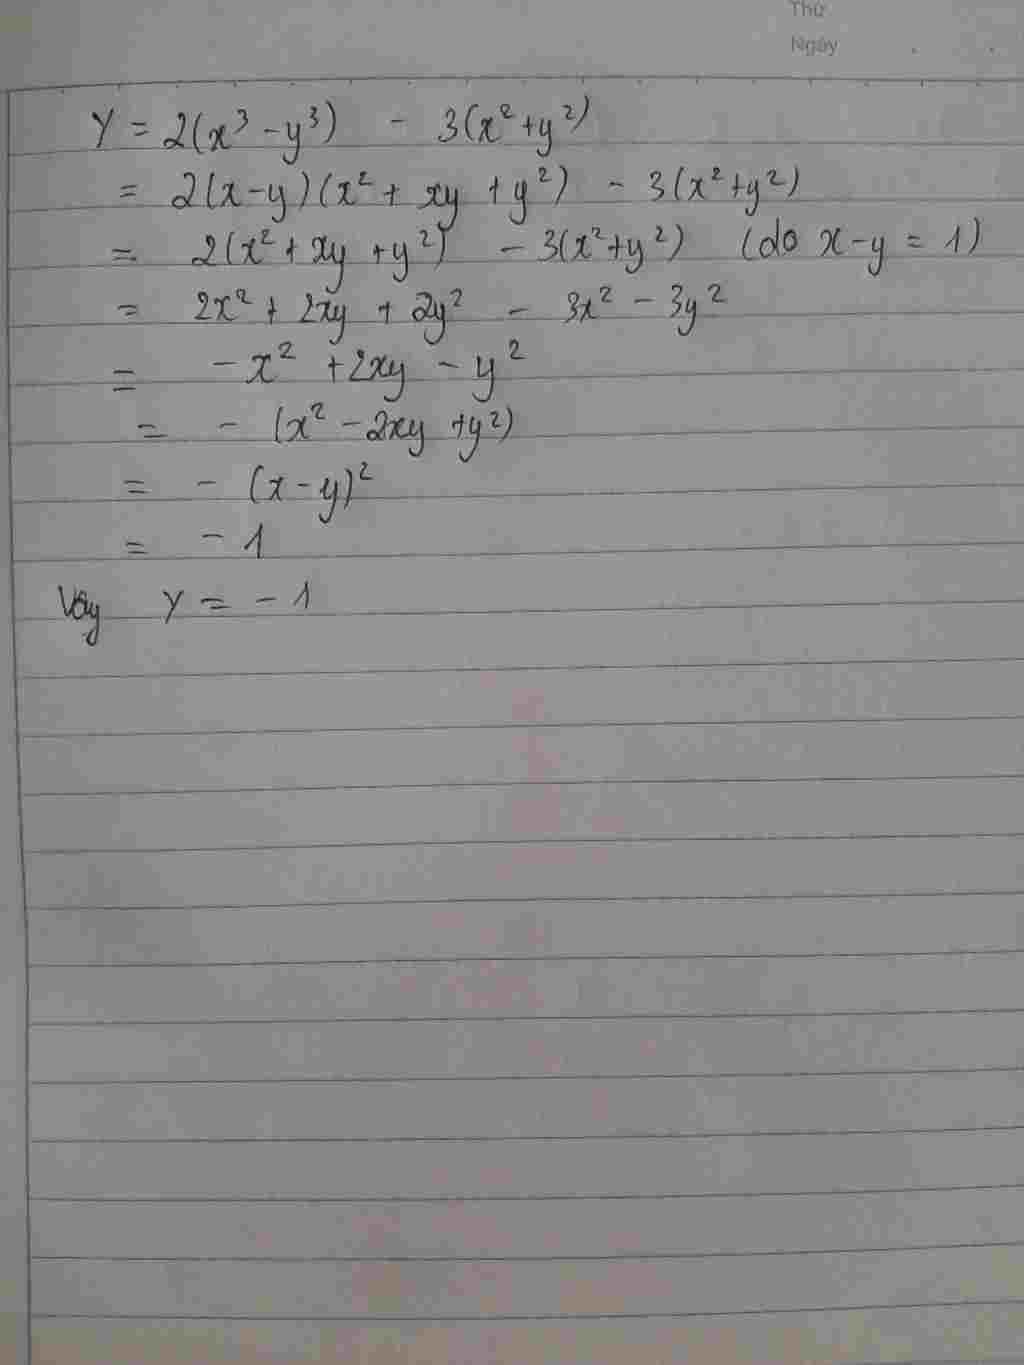 Thứ
Ngày
Y = 2(x³ - y³) - 3(x² + y²)
= 2(x - y)(x² + xy + y²) - 3(x² + y²)
= 2(x² + xy + y²) - 3(x² + y²) (do x - y = 1)
= 2x² + 2xy + 2y² - 3x² - 3y²
= - x² + 2xy - y²
= - (x² - 2xy + y²)
= - (x - y)²
= - 1
Vậy Y = - 1